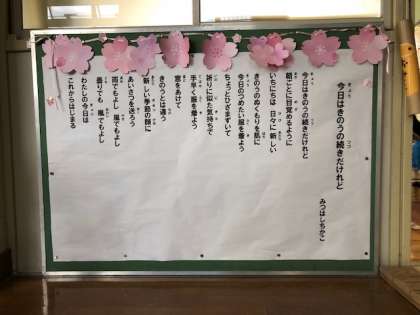 今日はきのうの続きだけれど
みつはしちかこ
今日はきのうの続きだけれど
朝ごとに目覚めるように
いちにちは 日々に新しい
きのうのぬくもりを肌に
今日のつめたい服を着よう
ちょっとひざまずいて
祈りに似た気持ちで
手早く服を着よう
窓をあけて
きのうとは違う
新しい季節の顔に
あいさつを送ろう
雨でもよし 風でもよし
曇りでも 嵐でもよし
わたしの今日は
これからはじまる